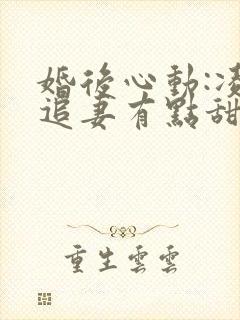 婚後心動:凌
追妻有點甜
重生雲雲